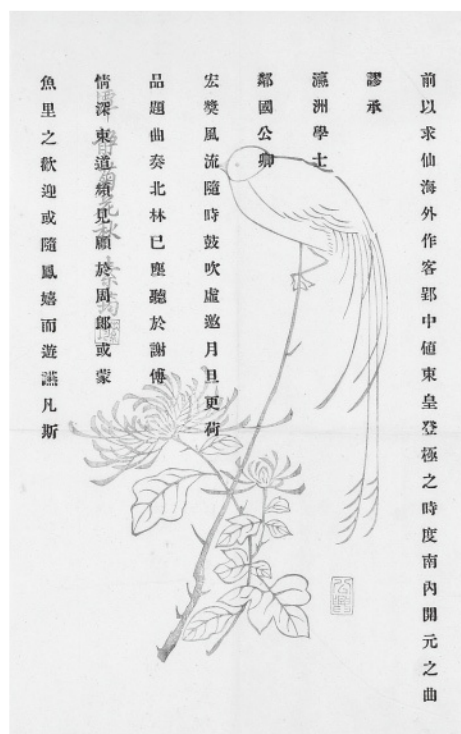 前以求仙海外作客郢中値東皇登極之時度南內開元之曲
謬承
瀛洲學士
鄰國公卿
宏獎風流隨時鼓吹虛邀月旦更荷
品題曲奏北林已塵聽於謝傅
情深東道頻見顧於周郎或蒙
魚里之歡迎或隨鳳嬉而遊讌凡斯